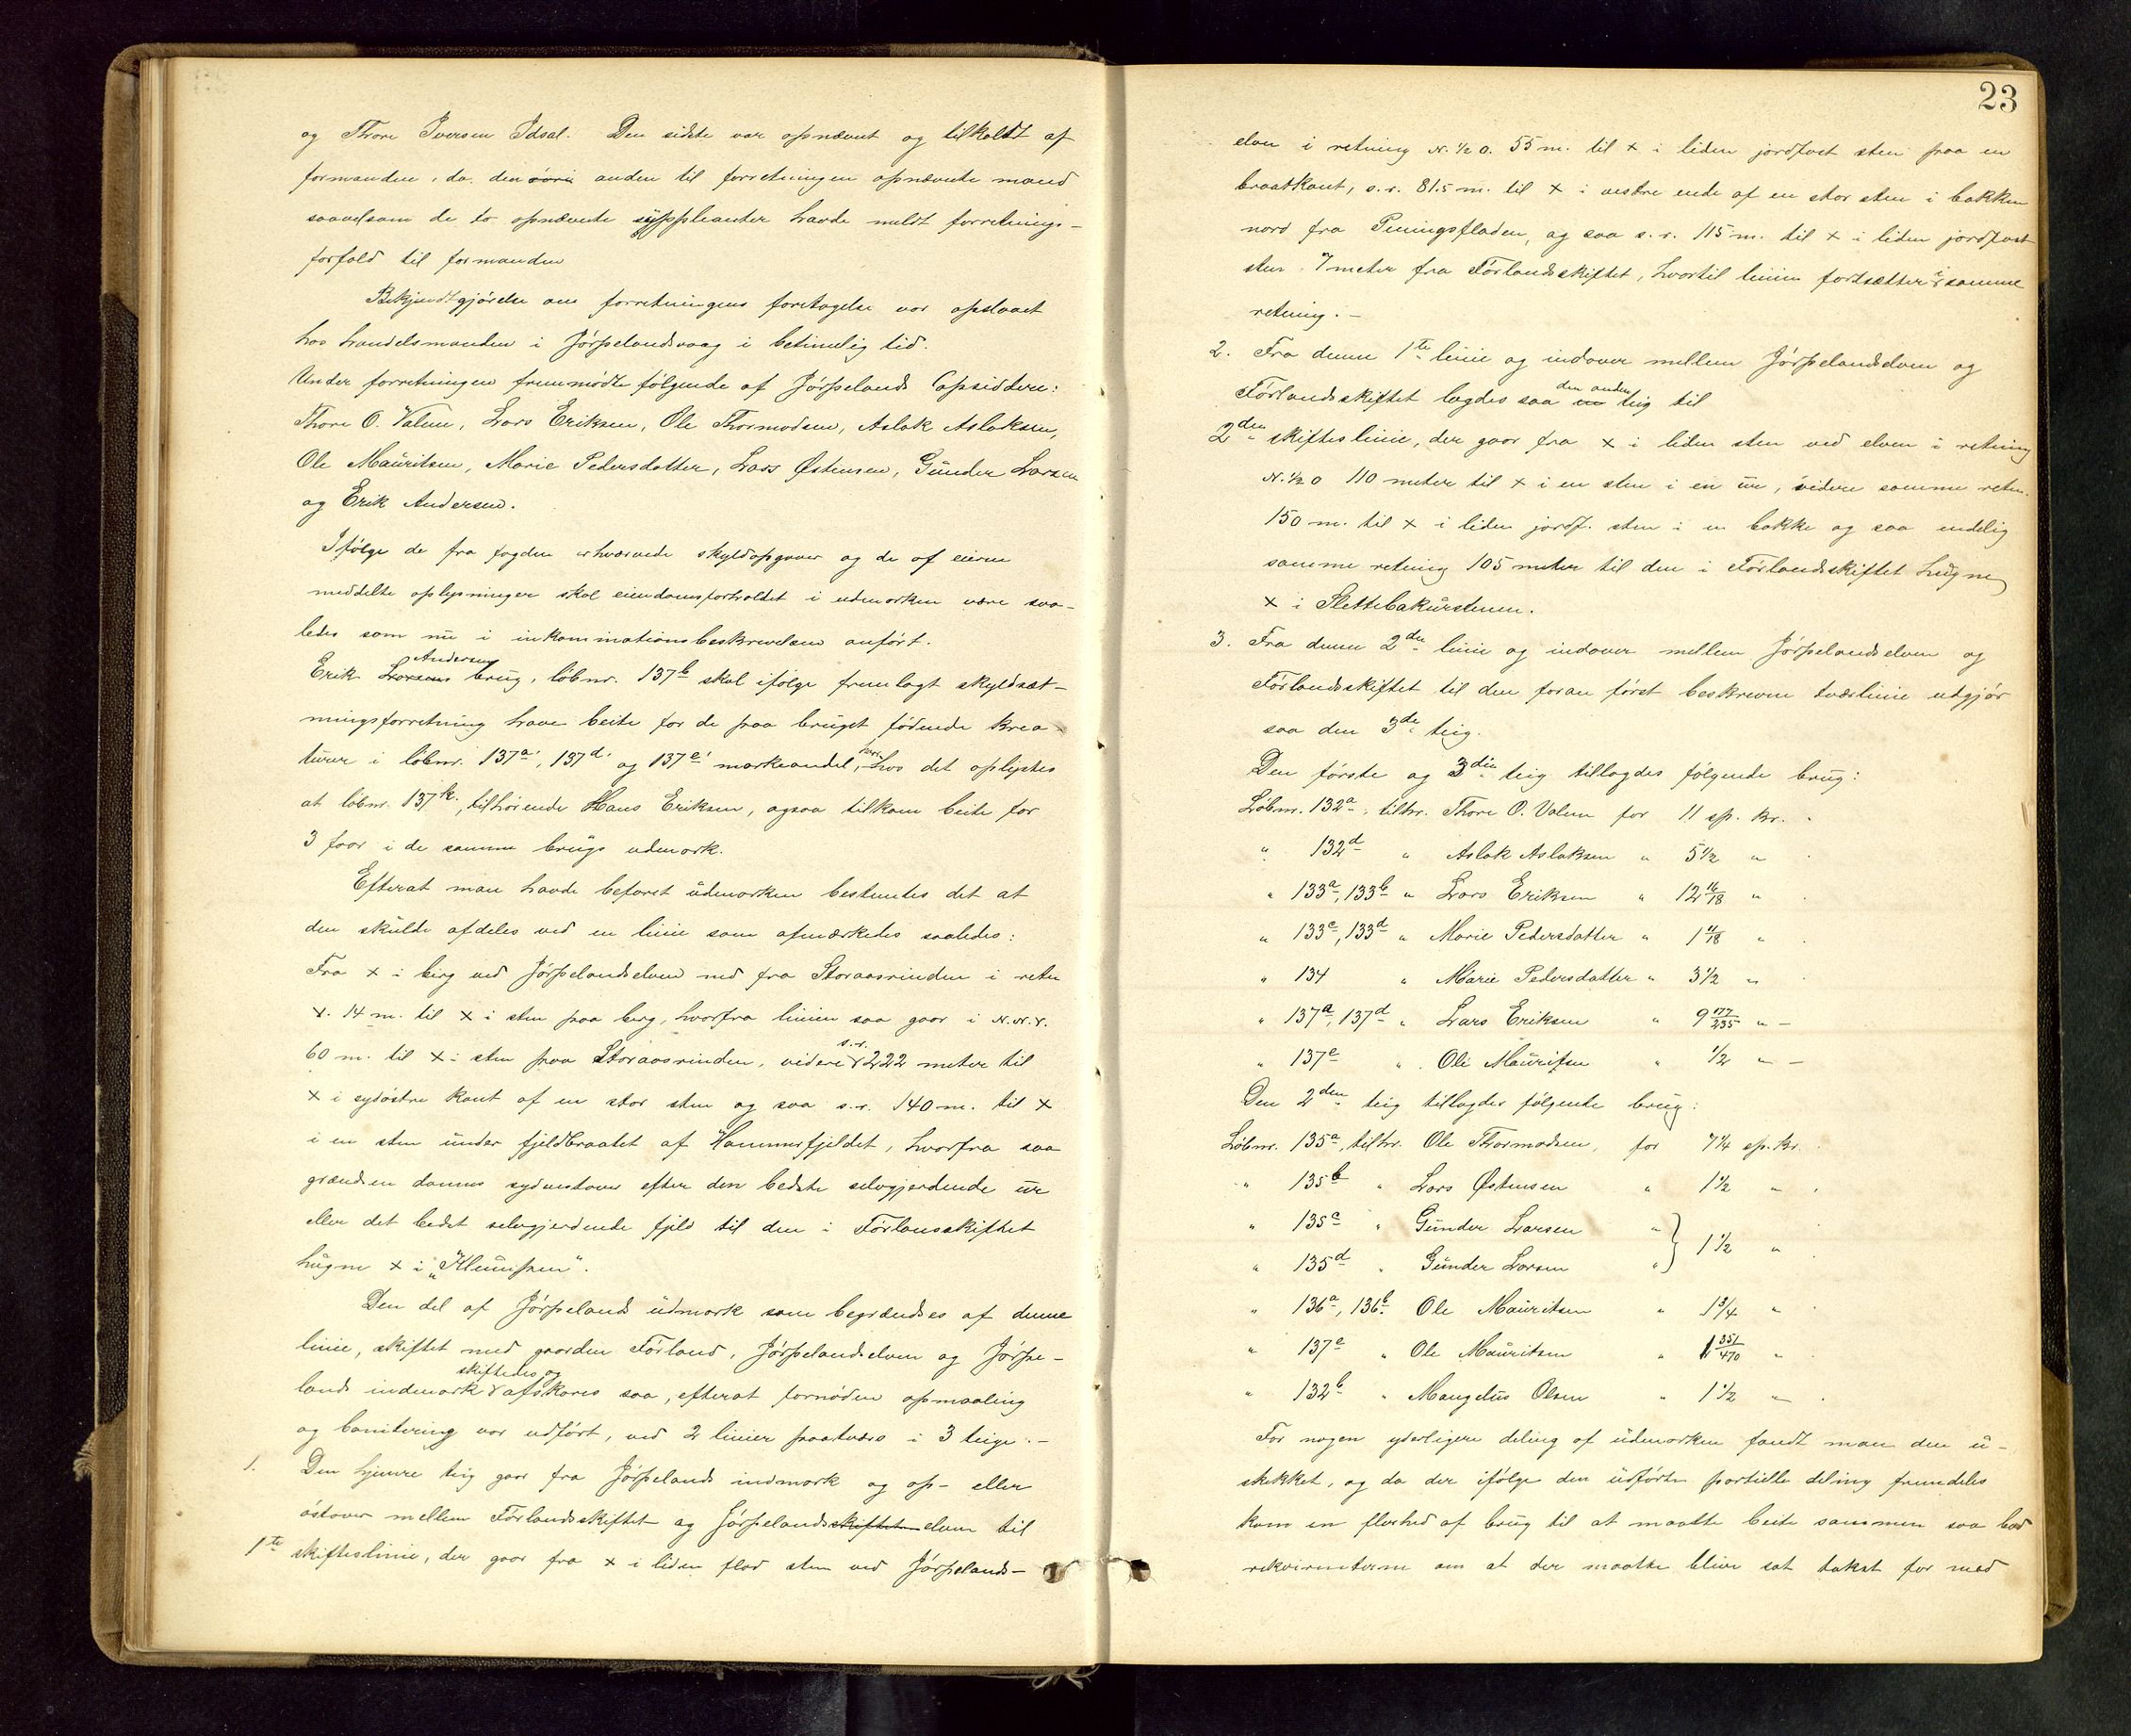 og Thore Iversen Idsal. Den sidste var opnævnt og tilkaldt af
formanden, da den anden til forretningen opnævnte mand
saavelsom de to opnævnte suppleanter havde meldt forretnings-
forfald til formanden
Bekjendtgjørelse om forretningens foretagelse var opslaaet
hos handelsmanden i Jørpelandsvaag i betimelig tid.
Under forretningen fremmødte følgende af Jørpelands opsiddere:
Thore O. Valem, Lars Eriksen, Ole Thormodsen, Aslak Aslaksen,
Ole Mauritsen, Marie Pedersdatter, Lars Østensen, Gunder Larsen
og Erik Andersen.
Ifølge de fra fogden erhvervede skyldopgaver og de af eierne
meddelte oplysninger skal eiendomsforholdet i udmarken være saa-
ledes som nu i inkaminationsbeskrivelsen anført.
Erik Larsens Andersens brug, løbnr. 137b skal ifølge fremlagt skyldsæt-
ningsforretning have beite for de paa bruget fødende krea-
turer i løbnr. 137a, 137d og 137e markeandel, hos det oplystes
at løbnr. 137k, tilhørende Hans Eriksen, ogsaa tilkom beite for
3 faar i de samme brugs udmark.
Efterat man havde befaret udmarken bestemtes det at
den skulde afdeles ved en linie som afmærkedes saaledes:
Fra x i berg ved Jørpelandselven ned fra Storaasrinden i retn
V. 14 m. til x i sten paa berg, hvorfra linien saa gaar i N.N.V.
60 m. til x i sten paa Storaasrinden, videre s.r. 222 meter til
x i sydøstre kant af en stor sten og saa s.r. 140 m. til x
i en sten under fjeldbraatet af Hammersfjeldet, hvorfra saa
grændsen dannes sydvestover efter den bedste selvgjerdende ur
eller det bedst selvgjerdende fjeld til den i Førlandsskiftet
hugne x i "Klumpen".
Den del af Jørpelands udmark som begrændses af denne
linie, skiftet med gaarden Førland, Jørpelandselven og Jørpe-
lands indmark skiftedes og afskares saa, efterat fornøden opmaaling
og bonitering var udført, ved 2 linier paatvers i 3 teige.-
1. Den hjemre teig gaar fra Jørpelands indmark og op- eller
østover mellem Førlandsskiftet og Jørpelandsskiftet elven til
1ste skifteslinie, der gaar fra x i liden flad sten ved Jørpelands-
23
elven i retning N. 1/2 O. 55 m. til x i liden jordfast sten paa en
braatkant, s.r. 81.5 m. til x i vestre ende af en stor sten i bakken
nord fra Peningsfladen, og saa s.r. 115 m. til x i liden jordfast
sten 7 meter fra Førlandsskiftet, hvortil linien fortsætter i samme
retning. -
2. Fra denne 1ste linie og indover mellem Jørpelandselven og
Førlandsskiftet lagdes saa en den anden teig til
2den skifteslinie, der gaar fra x i liden sten ved elven i retning
N. 1/2 O 110 meter til x i en sten i en ur, videre samme retn.
150 m. til x i liden jordf. sten i en bakke og saa endelig
samme retning 105 meter til den i Førlandsskiftet hugne
x i Slettebakurstenen.
3. Fra denne 2den linie og indover mellem Jørpelandselven og
Førlandsskiftet til den foran først beskrevne tværlinie udgjør
saa den 3de teig.
Den første og 3die teig tillagdes følgende brug:
Løbnr. 132a, tilhr. Thore O. Valem for 11 sp. kr. .
" 132d " Aslak Aslaksen " 5 1/2 " .
" 133a, 133b " Lars Eriksen " 12 16/18 " .
" 133c, 133d " Marie Pedersdatter " 1 11/18 " .
" 134 " Marie Pedersdatter " 3 1/2 " .
" 137a, 137d " Lars Eriksen " 9 177/235 " -
" 137e " Ole Mauritsen " 1/2 " -
Den 2den teig tillagdes følgende brug:
Løbnr. 135a, tilhr. Ole Thormodsen, for 7 1/4 sp. kr. .
" 135b " Lars Østensen " 1 1/2 " .
" 135c " Gunder Larsen "
" 135d " Gunder Larsen " } 1 1/2 " .
" 136a, 136b Ole Mauritsen " 1 3/4 " .
" 137e " Ole Mauritsen " 1 351/470 " .
" 132b " Mangelus Olsen " 1 1/2 " .
For nogen yderligere deling af udmarken fandt man den u-
skikket, og da der ifølge den udførte partielle deling fremdeles
kom en flerhed af brug til at maatte beite sammen saa bad
rekvirenterne om at der maatte blive sat takst for med